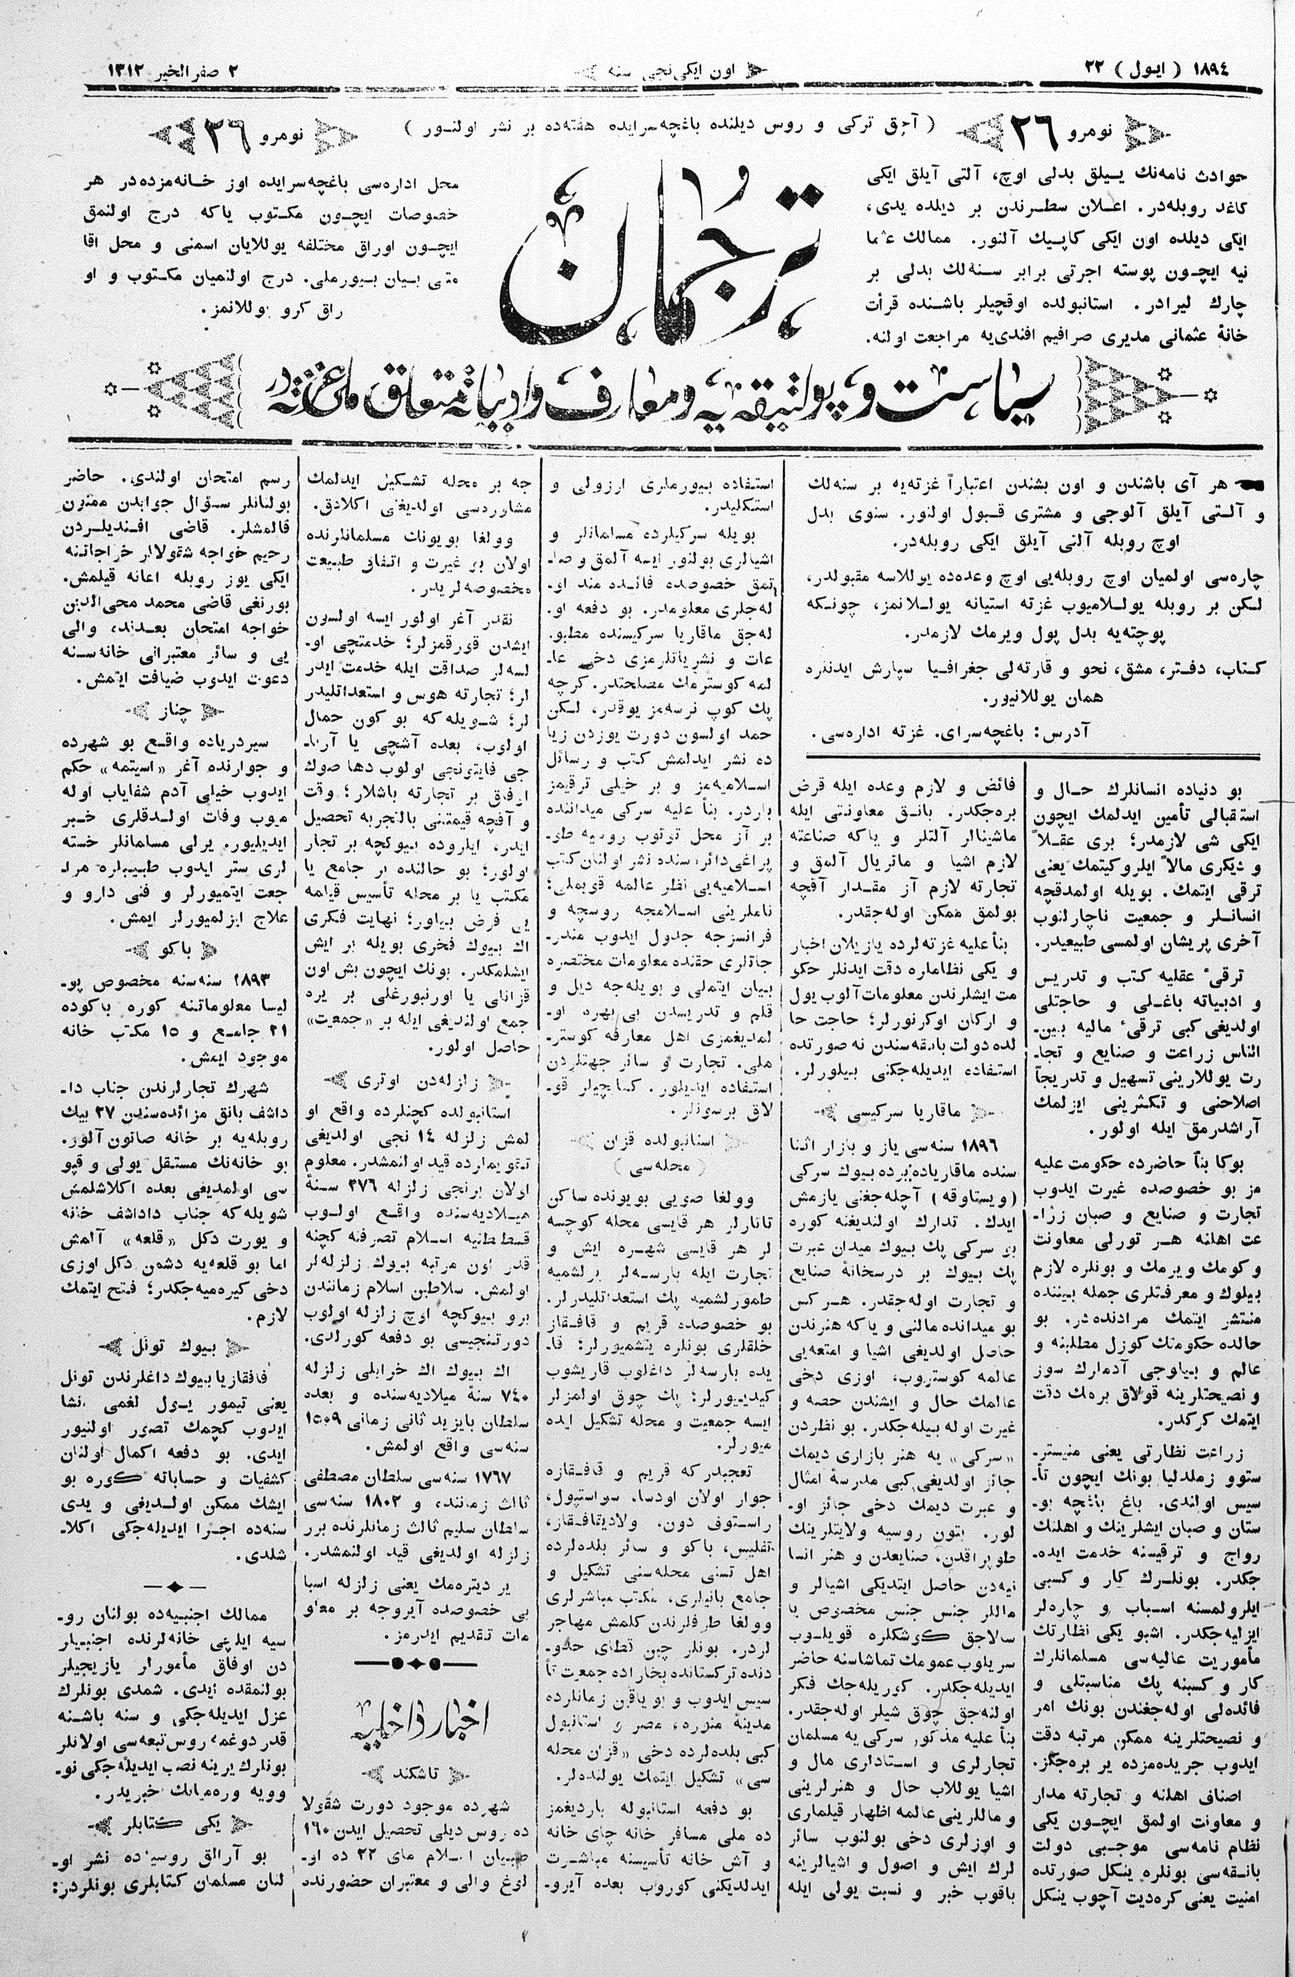 ١٨٩٤ ( ايول ) ٢٢
اون ايكی نجی سنه
٢ صفر الخير ١٣١٢
نومرو ٢٦
( آچق تركی و روس ديلنده باغچه‌سرايده هفته‌ده بر نشر اولنور )
نومرو ٢٦
حوادث نامه‌نك ييلق بدلی اوچ، آلتی آيلق ايكی
كاغد روبله‌در. اعلان سطرندن بر ديلده يدی،
ايكی ديلده اون ايكی كاپيك آلنور. ممالك عثما
نيه ايچون پوسته اجرتی برابر سنه‌لك بدلی بر
چارك ليرادر. استانبولده اوقچيلر باشنده قرأت
خانهٔ عثمانی مديری صرافيم افندی‌يه مراجعت اولنه.
ترجمان
محل اداره‌سی باغچه سرايده اوز خانه‌مزده‌در هر
خصوصات ايچون مكتوب ياكه درج اولنمق
ايچون اوراق مختلفه يوللايان اسمنی و محل اقا
متی بيان بيورملی. درج اولنميان مكتوب و او
راق كرو يوللانمز.
سياست و پولتيقه‌يه و معارف و ادبياته متعلق ملی غزته‌در
هر آی باشندن و اون بشندن اعتباراً غزته‌يه بر سنه‌لك
و آلتی آيلق آلوجی و مشتری قبول اولنور. سنوی بدل
اوچ روبله آلتی آيلق ايكی روبله‌در.
چاره‌سی اولميان اوچ روبله‌يی اوچ وعده‌ده يوللاسه مقبولدر،
لكن بر روبله يوللاميوب غزته استيانه يوللانمز، چونكه
پوچته‌يه بدل پول ويرمك لازمدر.
كتاب، دفتر، مشق، نحو و قارته‌لی جغرافيا سپارش ايدنلره
همان يوللانيور.
آدرس: باغچه‌سرای. غزته اداره‌سی.
بو دنياده انسانلرك حال و
استقبالی تأمين ايدلمك ايچون
ايكی شی لازمدر؛ بری عقلاً
و ديكری مالاً ايلروكيتمك يعنی
ترقی ايتمك. بويله اولمدقچه
انسانلر و جمعيت ناچارلنوب
آخری پريشان اولمسی طبيعيدر.
ترقیٔ عقليه كتب و تدريس
و ادبياته باغلی و حاجتلی
اولديغی كبی ترقیٔ ماليه بين‌ـ
الناس زراعت و صنايع و تجا‌ـ
رت يوللارينی تسهيل و تدريجاً
اصلاحنی و تكثرينی ايزلمك
آراشدرمق ايله اولور.
بوكا بناً حاضرده حكومت عليه
مز بو خصوصده غيرت ايدوب
تجارت و صنايع و صبان زرا‌ـ
عت اهلنه هر تورلی معاونت
و كومك ويرمك و بونلره لازم
بيلوك و معرفتلری جمله بيننده
منتشر ايتمك مرادنده‌در. بو
حالده حكومتك كوزل مطلبنه و
عالم و بيلوجی آدمارك سوز
و نصيحتلرينه قولاق برمك دقت
ايتمك كركدر.
زراعت نظارتی يعنی منيستر‌ـ
ستوو زملدليا بونك ايچون تأ‌ـ
سيس اولندی. باغ باغچه بو‌ـ
ستان و صبان ايشلرينك و اهلنك
رواج و ترقيسنه خدمت ايده‌ـ
جكدر. بونلرك كار و كسبی
ايلرولمسنه اسباب و چاره‌لر
ايزليه‌جكدر. اشبو يكی نظارتك
مأموريت عاليه‌سی مسلمانلرك
كار و كسبنه پك مناسبتلی و
فائده‌لی اوله‌جغندن بونك امر
و نصيحتلرينه ممكن مرتبه دقت
ايدوب جريده‌مزده ير بره‌جكز.
اصناف اهلنه و تجارته مدار
و معاونت اولمق ايچون يكی
نظام نامه‌سی موجبی دولت
بانقه‌سی بونلره ينكل صورتده
امنيت يعنی كره‌ديت آچوب ينكل
فائض و لازم وعده ايله قرض
بره‌جكدر. بانق معاونتی ايله
ماشينالر آلتلر و ياكه صناعته
لازم اشيا و ماتريال آلمق و
تجارته لازم آز مقدار آقچه
بولمق ممكن اوله‌جقدر.
بناً عليه غزته‌لرده يازيلان اخبار
و يكی نظاملره دقت ايدنلر حكو
مت ايشلرندن معلومات آلوب يول
و اركان اوكرنورلر؛ حاجت حا
لده دولت بانقه‌سندن نه صورتده
استفاده ايديله‌جكنی بيلورلر.
ماقاريا سركيسی
١٨٩٦ سنه‌سی ياز و بازار اثنا
سنده ماقارياده بر ده بيوك سركی
( ويستاوقه ) آچله‌جغنی يازمش
ايدك. تدارك اولنديغنه كوره
بو سركی پك بيوك ميدان عبرت
پك بيوك بر درسخانهٔ صنايع
و تجارت اوله‌جقدر. هر كس
بو ميدانده مالنی و ياكه هنرندن
حاصل اولديغی اشيا و امتعه‌يی
عالمه كوستروب، اوزی دخی
عالمك حال و ايشندن حصه و
غيرت اوله بيله‌جكدر. بو نظردن
«سركی» يه هنر بازاری ديمك
جائز اولديغی كبی مدرسهٔ امثال
و عبرت ديمك دخی جائز او‌ـ
لور. بتون روسيه ولايتلرينك
طوپراقدن، صنايعدن و هنر انسا
نيه‌دن حاصل ايتديكی اشيالر و
ماللر جنس جنس مخصوص يا
سالاجق كوشكلره قويلوب
سريلوب عمومك تماشاسنه حاضر
ايديله‌جكدر. كوريله‌جك فكر
اولنه‌جق چوق شيلر اوله‌جقدر.
بناً عليه مذكور سركی يه مسلمان
تجارلری و استادلری مال و
اشيا يوللاب حال و هنرلرينی
و ماللرينی عالمه اظهار قيلمالری
و اوزلری دخی بولنوب سائر
لرك ايش و اصول و اشيالرينه
باقوب خبر و نسبت يولی ايله
استفاده بيورملری ارزولی و
استكليدر.
بويله سركيلرده مسلمانلر و
اشيالری بولنور ايسه آلمق و صا‌ـ
تمق خصوصده فائده مند او‌ـ
له‌جلری معلومدر. بو دفعه او‌ـ
له‌جق ماقاريا سركيسنده مطبو‌ـ
عات و نشرياتلرمزی دخی عا‌ـ
لمه كوسترمك مصلحتدر. كرچه
پك كوپ نرسه‌مز يوقدر، لكن
حمد اولسون دورت يوزدن زيا
ده نشر ايدلمش كتب و رسائل
اسلاميه‌مز و بر خيلی ترقيمز
باردر. بناً عليه سركی ميداننده
بر آز محل توتوب روسيه طو‌ـ
پراغی دائره‌سنده نشر اولنان كتب
اسلاميه‌يی نظر عالمه قويملی؛
ناملرينی اسلامجه روسچه و
فرانسزجه جدول ايدوب مندر‌ـ
جاتلری حقنده معلومات مختصره
بيان ايتملی و بويله‌جه ديل و
قلم و تدريسدن بی بهره او‌ـ
لمديغمزی اهل معارفه كوستر‌ـ
ملی. تجارت و سائر جهتلردن
استفاده ايديلور. كتابچيلر قو‌ـ
لاق برسونلر.
استانبولده قزان
( محله‌سی )
وولغا صويی بويونده ساكن
تاتارلر هر قايسی محله كوچسه
لر هر قايسی شهره ايش و
تجارت ايله بارسه‌لر برلشميه
طمورلشميه پك استعداتليدرلر.
بو خصوصده قريم و قافقاز
خلقلری بونلره يتشميورلر؛ قا‌ـ
يده بارسه‌لر داغلوب قاريشوب
كيديورلر؛ پك چوق اولمزلر
ايسه جمعيت و محله تشكيل ايده
ميورلر.
تعجبدركه قريم و قافقازه
جوار اولان اودسا، سواستپول،
راستوف دون، ولاديقافقاز،
تفليس، باكو و سائر بلده‌لرده
اهل تسنی محله‌سنی تشكيل و
جامع بانيلری، مكتب مباشرلری
وولغا طرفلرندن كلمش مهاجر
لردر. بونلر چين خطای حدو‌ـ
دنده تركستانده بخاراده جمعت تأ
سيس ايدوب و بو ياقن زمانلرده
مدينهٔ منوره، مصر و استانبول
كبی بلده‌لرده دخی «قزان محله
سی» تشكيل ايتمك يولنده‌لر.
بو دفعه استانبوله بارديغمز
ده ملی مسافر خانه چای خانه
و آش خانه تأسيسنه مباشرت
ايدلديكنی كوروب بعده آيرو‌ـ
جه بر محله تشكيل ايدلمك
مشاوره‌سی اولديغی اكلادق.
وولغا بويونك مسلمانلرنده
اولان بو غيرت و اتفاق طبيعت
مخصوصه‌لريدر.
نقدر آغر اولور ايسه اولسون
ايشدن قورقمزلر؛ خدمتچی او‌ـ
لسه‌لر صداقت ايله خدمت ايدر
لر؛ تجارته هوس و استعداتليدر
لر؛ شويله‌كه بو كون حمال
اولوب، بعده آشچی يا آربا‌ـ
جی فايتونجی اولوب دها صوك
ارفاق بر تجارته باشلار؛ وقت
و آقچه قيمتنی بالتجربه تحصيل
ايدر، ايلروده بيوكچه بر تجار
اولور؛ بو حالنده بر جامع يا
مكتب يا بر محله تأسيس قيلمه
يی فرض بيلور؛ نهايت فكری
اك بيوك فخری بويله بر ايش
ايشلمكدر. بونك ايچون بش اون
قزانلی يا اورنبورغلی بر يره
جمع اولنديغی ايله بر «جمعت»
حاصل اولور.
زلزله‌دن اوتری
استانبولده كچنلرده واقع او
لمش زلزله ١٤ نجی اولديغی
تقويملرده قيد اولنمشدر. معلوم
اولان برنجی زلزله ٢٧٦ سنهٔ
ميلاديه‌سنده واقع اولوب
قسطنطنيه اسلام تصرفنه كچنه
قدر اون مرتبه بيوك زلزله‌لر
اولمش. سلاطين اسلام زماندن
برو بيوكچه اوچ زلزله اولوب
دورتنجيسی بو دفعه كورلدی.
اك بيوك اك خرابلی زلزله
٧٤٠ سنهٔ ميلاديه‌سنده و بعده
سلطان بايزيد ثانی زمانی ١٥٠٩
سنه‌سی واقع اولمش.
١٧٦٧ سنه‌سی سلطان مصطفی
ثالث زماننده، و ١٨٠٢ سنه‌سی
سلطان سليم ثالث زمانلرنده برر
زلزله اولديغی قيد اولنمشدر.
ير ديتره‌مك يعنی زلزله اسبا
بی خصوصده آيروجه بر معلو
مات تقديم ايدرمز.
اخبار داخليه
تاشكند
شهرده موجود دورت شقولا
ده روس ديلی تحصيل ايدن ١٦٠
صبيان اسلام مای ٢٢ ده او‌ـ
لوغ والی و معتبران حضورنده
رسم امتحان اولندی. حاضر
بولنانلر سؤال جوابدن ممنون
قالمشلر. قاضی افنديلردن
رحيم خواجه شقولالر خراجاتنه
ايكی يوز روبله اعانه قيلمش.
بورنغی قاضی محمد محی الدين
خواجه امتحان بعدنده، والی
يی و سائر معتبرانی خانه‌سنه
دعوت ايدوب ضيافت ايتمش.
چناز
سيردرياده واقع بو شهرده
و جوارنده آغر «اسيتمه» حكم
ايدوب خيلی آدم شفاياب اوله
ميوب وفات اولدقلری خبر
ايديليور. يرلی مسلمانلر خسته
لری ستر ايدوب طبيبلره مرا‌ـ
جعت ايتميورلر و فنی دارو و
علاج ايزلميورلر ايمش.
باكو
١٨٩٣ سنه‌سنه مخصوص پو‌ـ
ليسا معلوماتنه كوره باكوده
٢١ جامع و ١٥ مكتب خانه
موجود ايمش.
شهرك تجارلرندن جناب دا‌ـ
داشف بانق مزائده‌سندن ٢٧ بيك
روبله‌يه بر خانه صاتون آلور.
بو خانه‌نك مستقل يولی و قپو
سی اولمديغی بعده اكلاشلمش
شويله‌كه جناب داداشف خانه
و يورت دكل «قلعه» آلمش
اما بو قلعه‌يه دشمن دكل اوزی
دخی كيره‌ميه‌جكدر؛ فتح ايتمك
لازم.
بيوك تونل
قافقازيا بيوك داغلرندن تونل
يعنی تيمور يول لغمی انشا
ايدوب كچمك تصور اولنيور
ايدی. بو دفعه اكمال اولنان
كشفيات و حساباته كوره بو
ايشك ممكن اولديغی و يدی
سنه‌ده اجرا ايديله‌جكی اكلا‌ـ
شلدی.
ممالك اجنبيه‌ده بولنان رو‌ـ
سيه ايلچی خانه‌لرنده اجنبيلر
دن اوفاق مأمورلر يازيجيلر
بولنمقده ايدی. شمدی بونلرك
عزل ايديله‌جكی و سنه باشنه
قدر دوغمه روس تبعه‌سی اولانلر
بونلرك يرينه نصب ايديله‌جكی نو‌ـ
وويه وره‌ميانك خبريدر.
يكی كتابلر
بو آرالق روسيه‌ده نشر او‌ـ
لنان مسلمان كتابلری بونلردر: